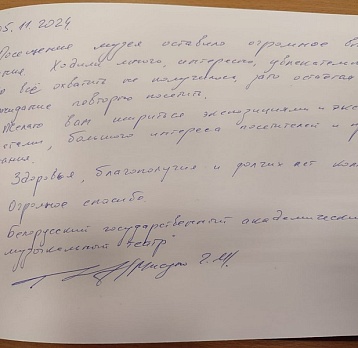 05.11.2024
Посещение музея оставило огромное в
ние. Ходили много, интересно, увлекательн
о всё охватить не получилось, зато осталось
ожидание повторно посетить.
Желаю вам шириться экспозициями и экс
тами, большого интереса посетителей и п
ания.
Здоровья, благополучия и долгих лет кол
Огромное спасибо.
Белорусский государственный академический
музыкальный театр"